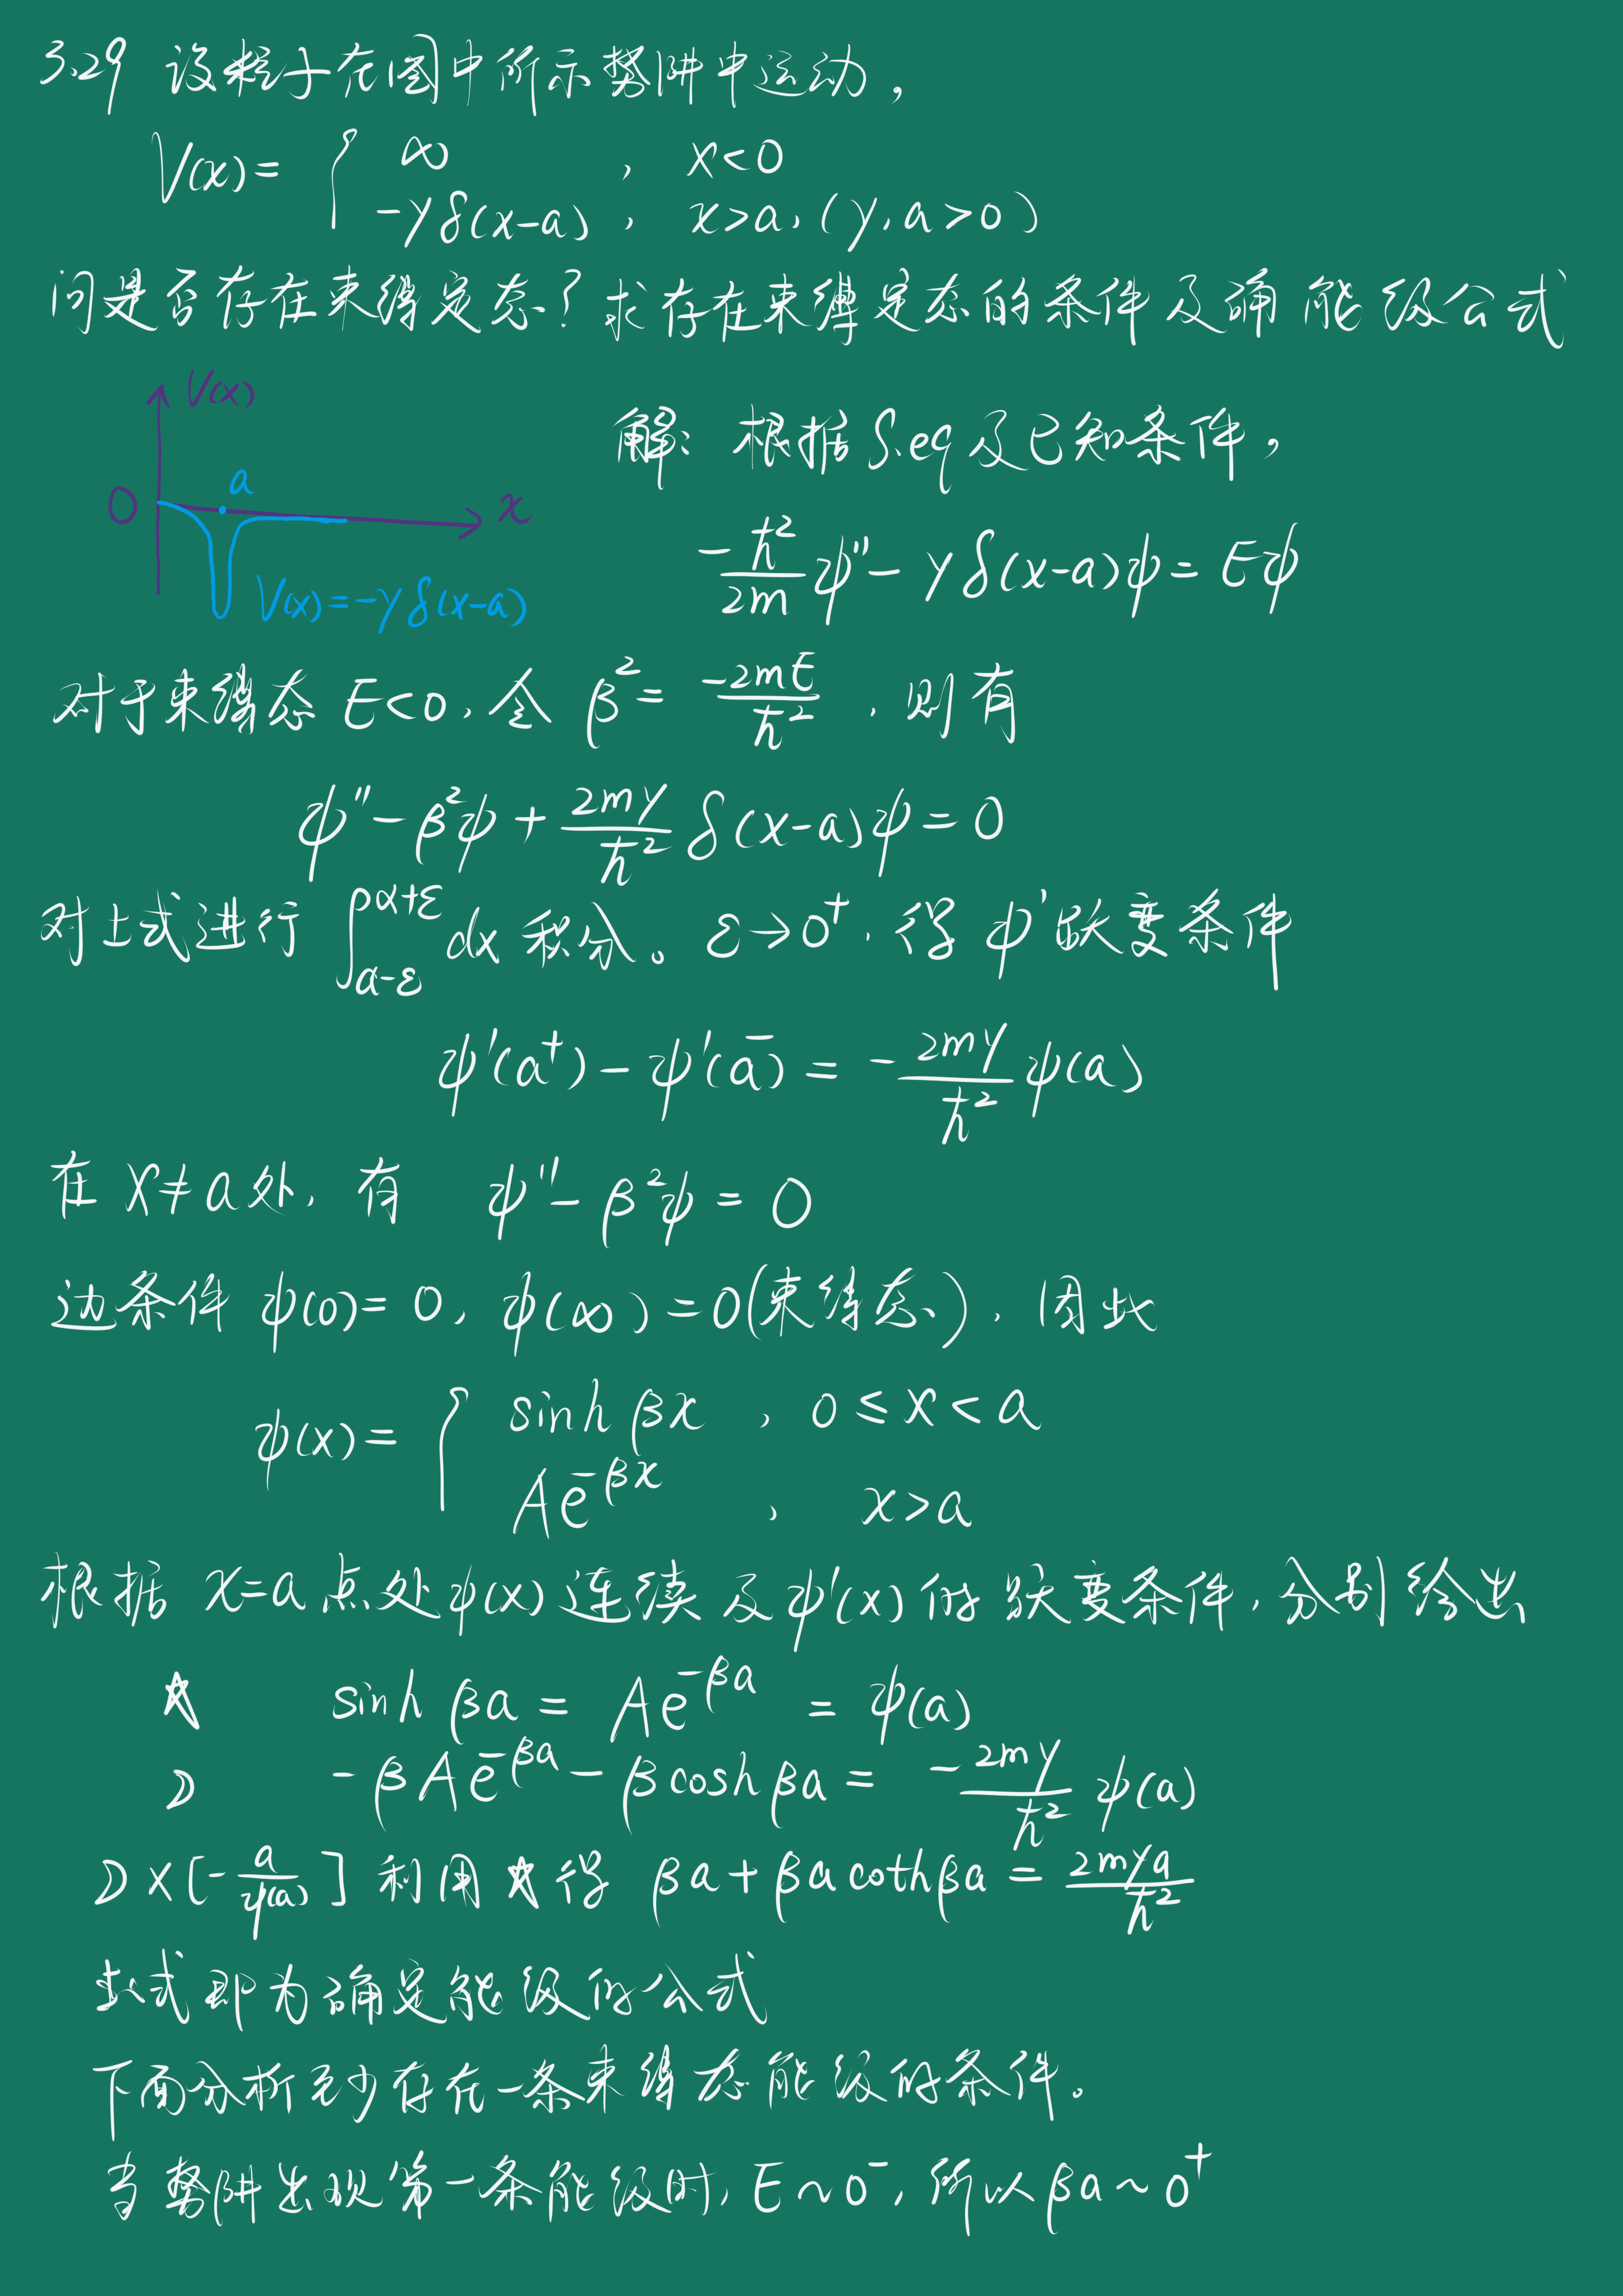 3.29 设粒子在图中所示势阱中运动,
V(x)= { ∞ , x<0
-γδ(x-a), x>a, (γ,a>0)
问是否存在束缚定态?求存在束缚定态的条件及确能级公式
V(x)
0 a x
V(x)=-γδ(x-a)
解: 根据S.eq及已知条件,
-ħ²/2m ψ'' - γδ(x-a)ψ = Eψ
对于束缚态 E<0, 令 β² = -2mE/ħ², 则有
ψ'' - β²ψ + 2mγ/ħ² δ(x-a)ψ = 0
对上式进行 ∫_{a-ε}^{a+ε} dx 积分。ε→0⁺, 得 ψ' 跃变条件
ψ'(a⁺) - ψ'(a⁻) = -2mγ/ħ² ψ(a)
在 x≠a 处, 有 ψ'' - β²ψ = 0
边条件 ψ(0)=0, ψ(∞)=0(束缚态), 因此
ψ(x)= { sinh βx , 0≤x<a
Ae^{-βx} , x>a
根据 x=a 点处 ψ(x) 连续及 ψ'(x) 的跃变条件, 分别给出
☆ sinh βa = Ae^{-βa} = ψ(a)
☽ -βAe^{-βa} - β cosh βa = -2mγ/ħ² ψ(a)
☽×[-a/ψ(a)] 利用☆得 βa + βa coth βa = 2mγa/ħ²
此式即为确定能级的公式
下面分析至少存在一条束缚态能级的条件。
当势阱出现第一条能级时, E~0⁻, 所以 βa~0⁺